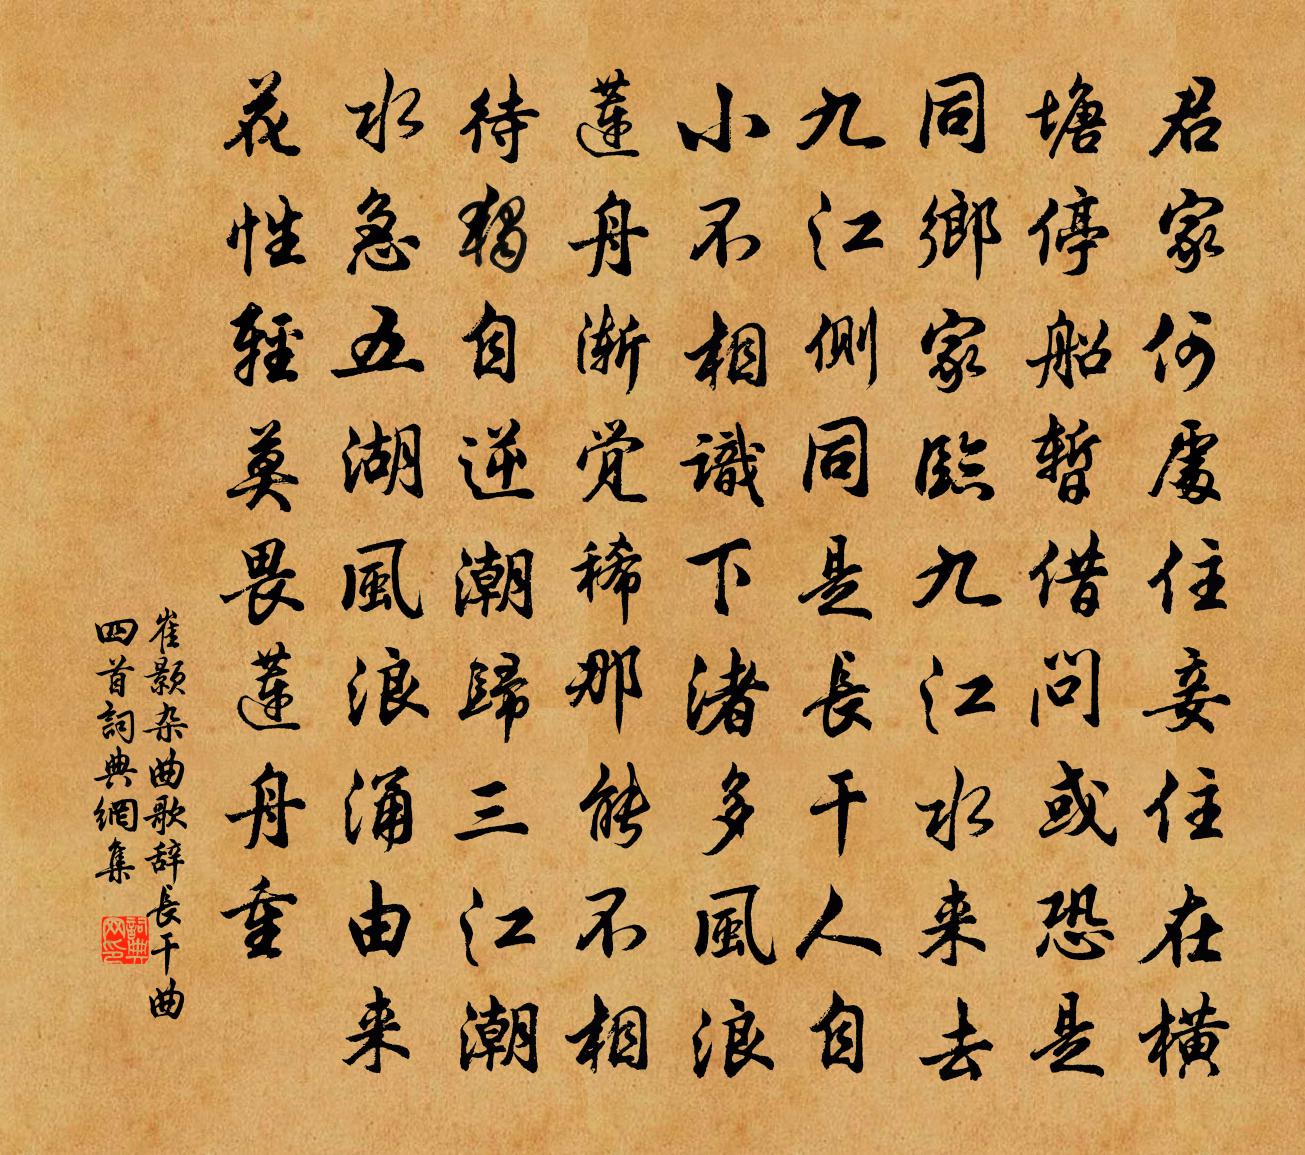 君家何處住妾住在橫
塘停船暫借問或恐是
同鄉家臨九江水来去
九江側同是長干人自
小不相識下渚多風浪
蓮舟漸覚稀那能不相
待獨自逆潮歸三江潮
水急五湖風浪涌由来
花性輕莫畏蓮舟重
崔颢杂曲歌辞長干曲
四首詞典網集
詞典网印